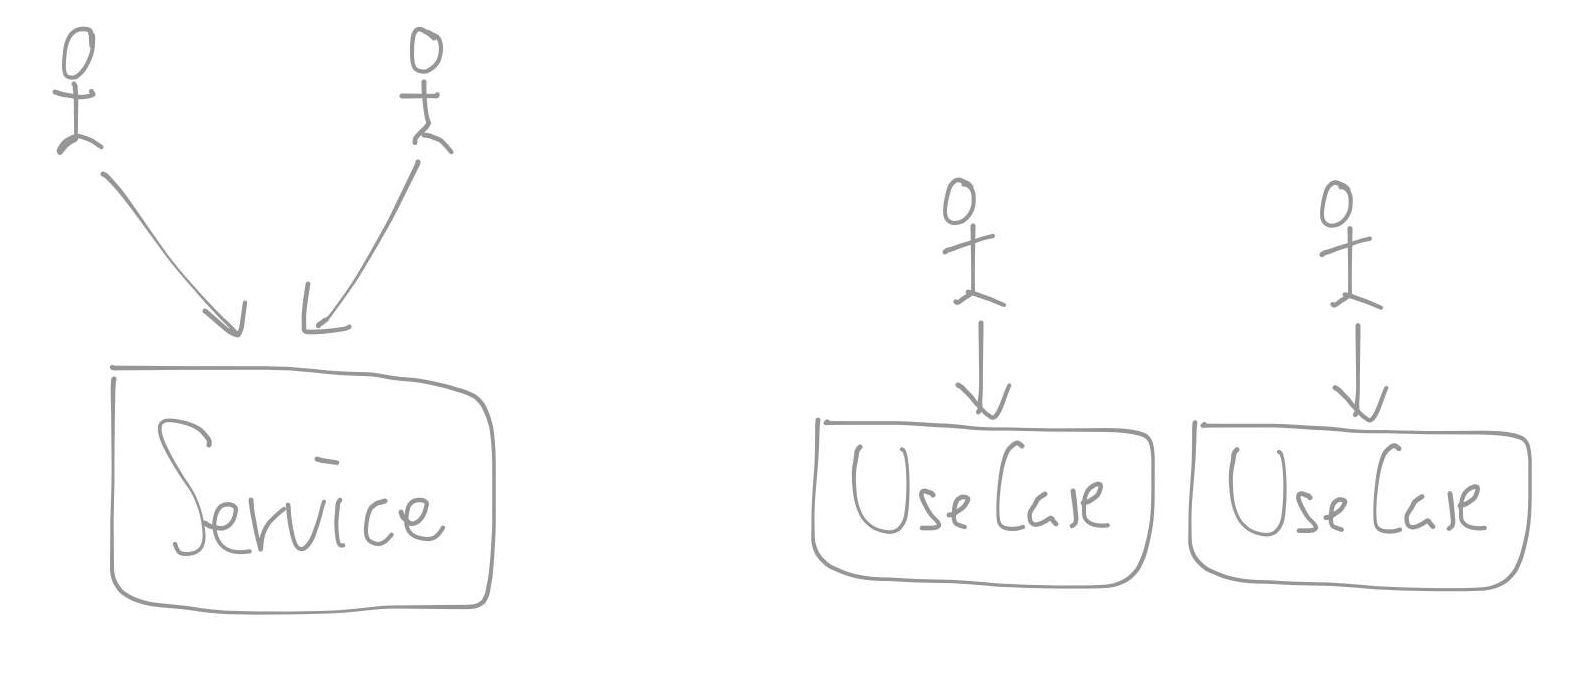 Service
UseCase
UseCase